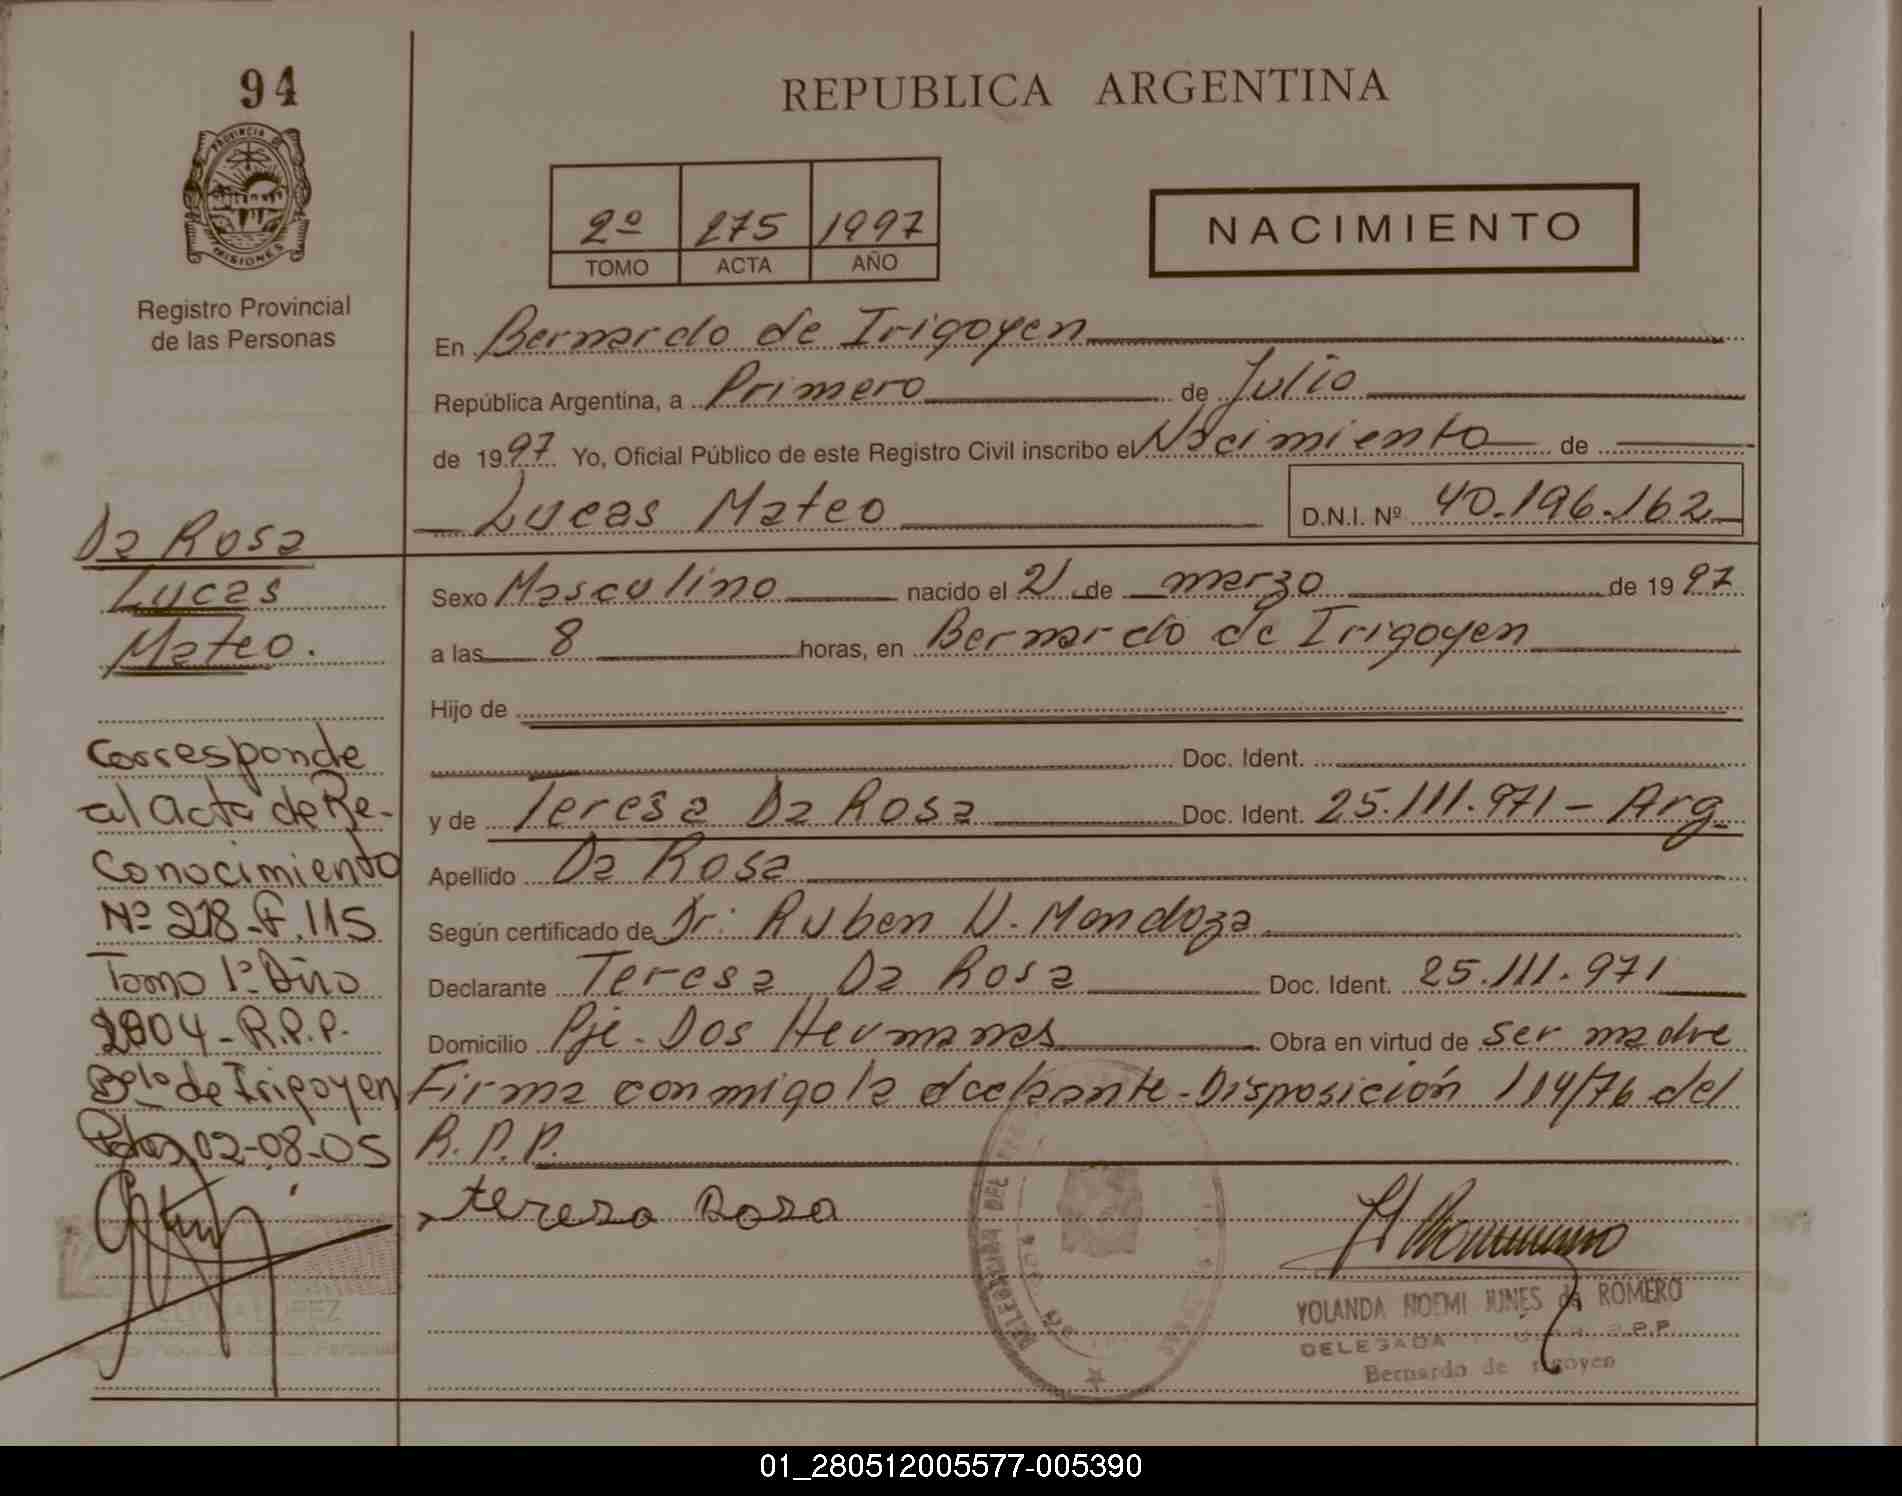 94
PROVINCIA DE
MISIONES
Registro Provincial
de las Personas
REPUBLICA ARGENTINA
2º 275 1997
TOMO ACTA AÑO
NACIMIENTO
En Bernardo de Irigoyen
República Argentina, a Primero de Julio
de 1997 Yo, Oficial Público de este Registro Civil inscribo el Nacimiento de
Lucas Mateo D.N.I. Nº 40.196.162
Sexo Masculino nacido el 21 de marzo de 1997
a las 8 horas, en Bernardo de Irigoyen
Hijo de
Doc. Ident.
y de Teresa Da Rosa Doc. Ident. 25.111.971 - Arg
Apellido Da Rosa
Según certificado de Dr: Ruben N. Mendoza
Declarante Teresa Da Rosa Doc. Ident. 25.111.971
Domicilio Pje. Dos Hermanas Obra en virtud de ser madre
Firma conmigo la declarante - Disposición 114/76 del
R.P.P.
tereza Roza
YOLANDA NOEMI JUNES de ROMERO
DELEGADA R.P.P.
Bernardo de Irigoyen
Da Rosa
Lucas
Mateo.
Corresponde
al Acta de Re-
Conocimiento
Nº 218-F.115
Tomo 1º Año
2004 - R.P.P.
Bdo de Irigoyen
02-08-05
LOPEZ
01_280512005577-005390